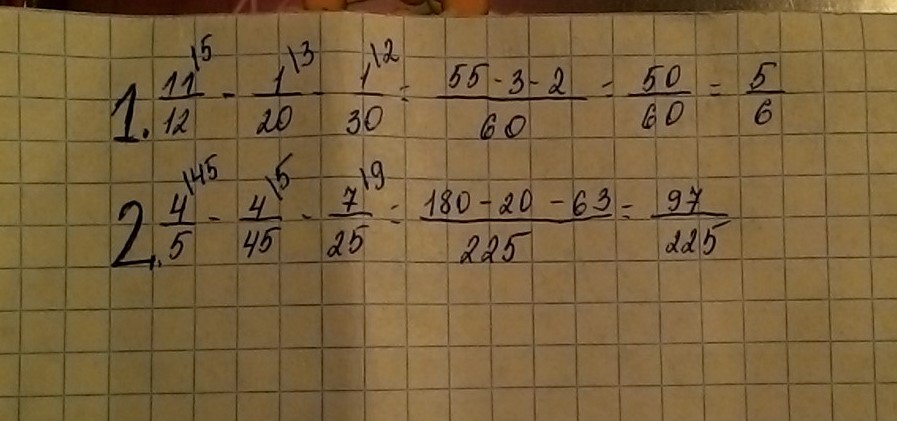 1. 11/12 \5 - 1/20 \3 - 1/30 \2 = 55 - 3 - 2/60 = 50/60 = 5/6
2. 4/5 \45 - 4/45 \5 - 7/25 \9 = 180 - 20 - 63/225 = 97/225